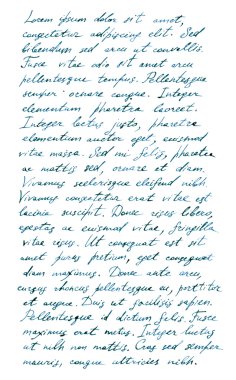 Lorem ipsum dolor sit amet,
consectetur adipiscing elit. Sed
bibendum sed arcu ut convallis.
Fusce vitae odio sit amet arcu
pellentesque tempus. Pellentesque
semper ornare congue. Integer
elementum pharetra laoreet.
Integer lectus justo, pharetra
elementum auctor eget, euismod
vitae massa. Sed mi felis, pharetra
ac mattis sed, ornare et diam.
Vivamus scelerisque eleifend nibh
Vivamus consectetur erat vitae est
lacinia suscipit. Donec risus libero,
egestas ac euismod vitae, fringilla
vitae risus. Ut consequat est sit
amet purus pretium, eget consequat
diam maximus. Donec ante arcu,
cursus rhoncus pellentesque ac, porttitor
et augue. Duis ut facilisis sapien.
Pellentesque id dictum felis. Fusce
maximus erat metus. Integer luctus
ut nibh non mattis. Cras sed semper
mauris, congue ultricies nibh.